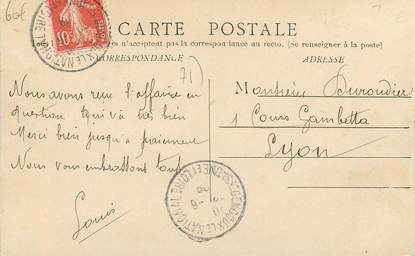 60€
CARTE POSTALE
Tous les pays étrangers n'acceptent pas la correspondance au recto. (Se renseigner à la poste)
CORRESPONDANCE
ADRESSE
71)
10c
Nous avons reçu l'affaire en
question qui va très bien
Merci bien jusqu'à paiement
Nous vous embrassons tous
Louis
Monsieur Duroudier
1 Cours Gambetta
Lyon
ST GENGOUX-LE-NATIONAL SAONE ET LOIRE